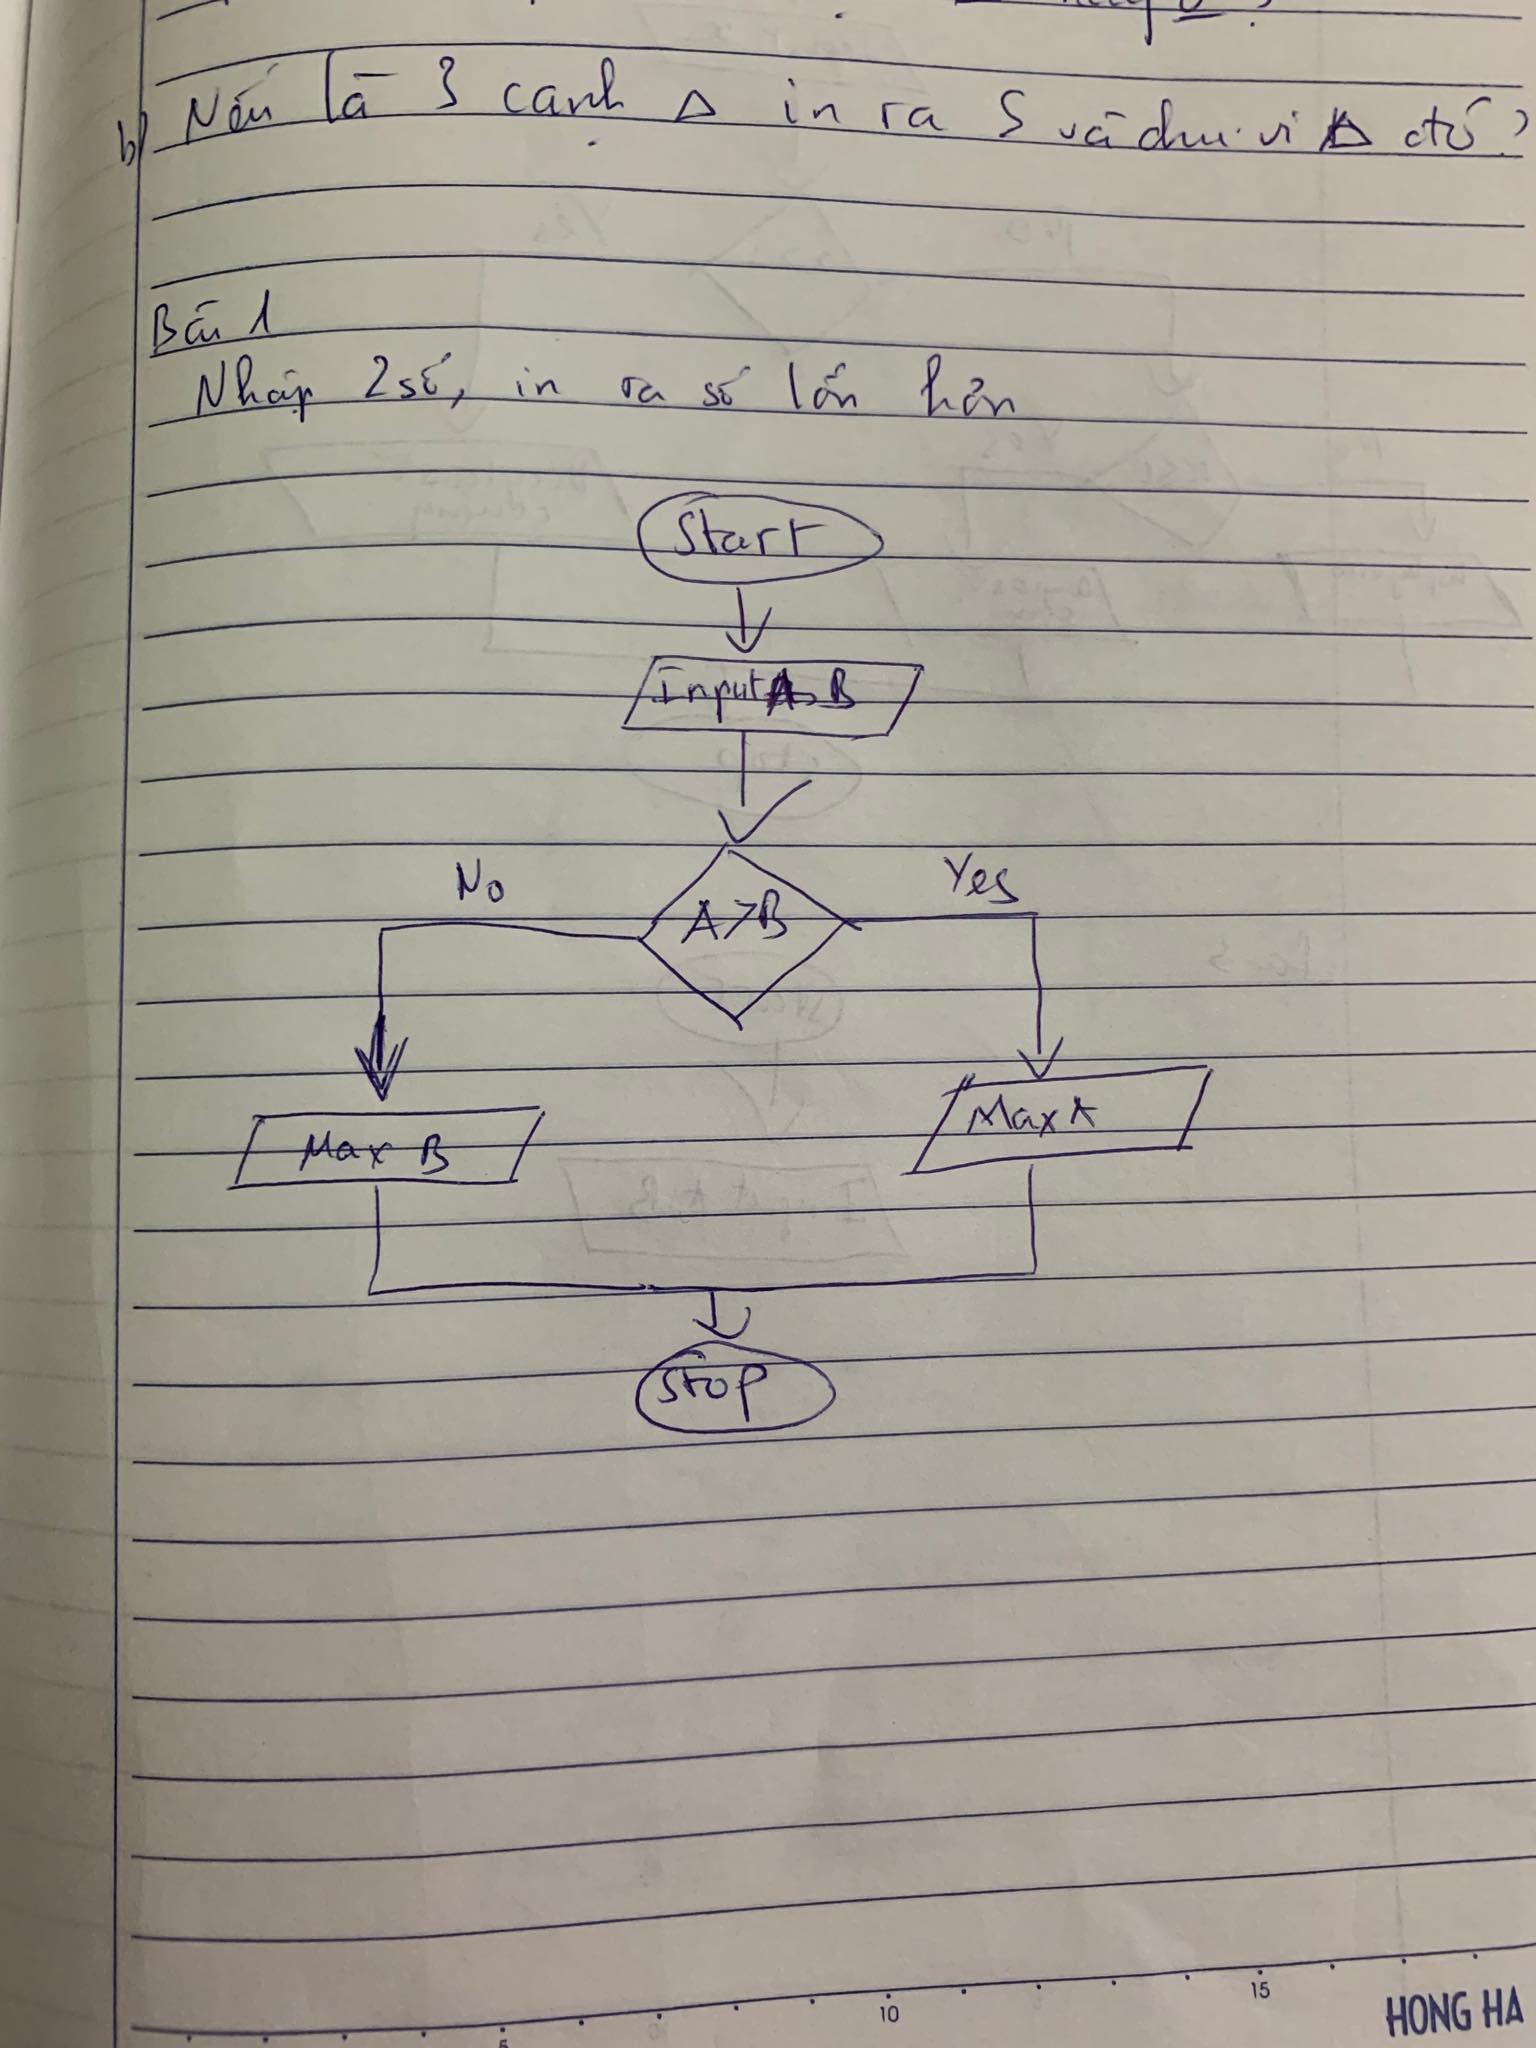 b) Nếu là 3 cạnh Δ in ra S và chu vi Δ đó?
Bài 1
Nhập 2 số, in ra số lớn hơn
Start
Input A, B
No
A>B
Yes
Max B
Max A
Stop
5
10
15
HONG HA